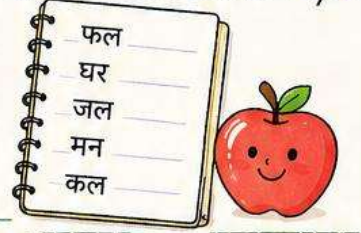 फल
घर
जल
मन
कल